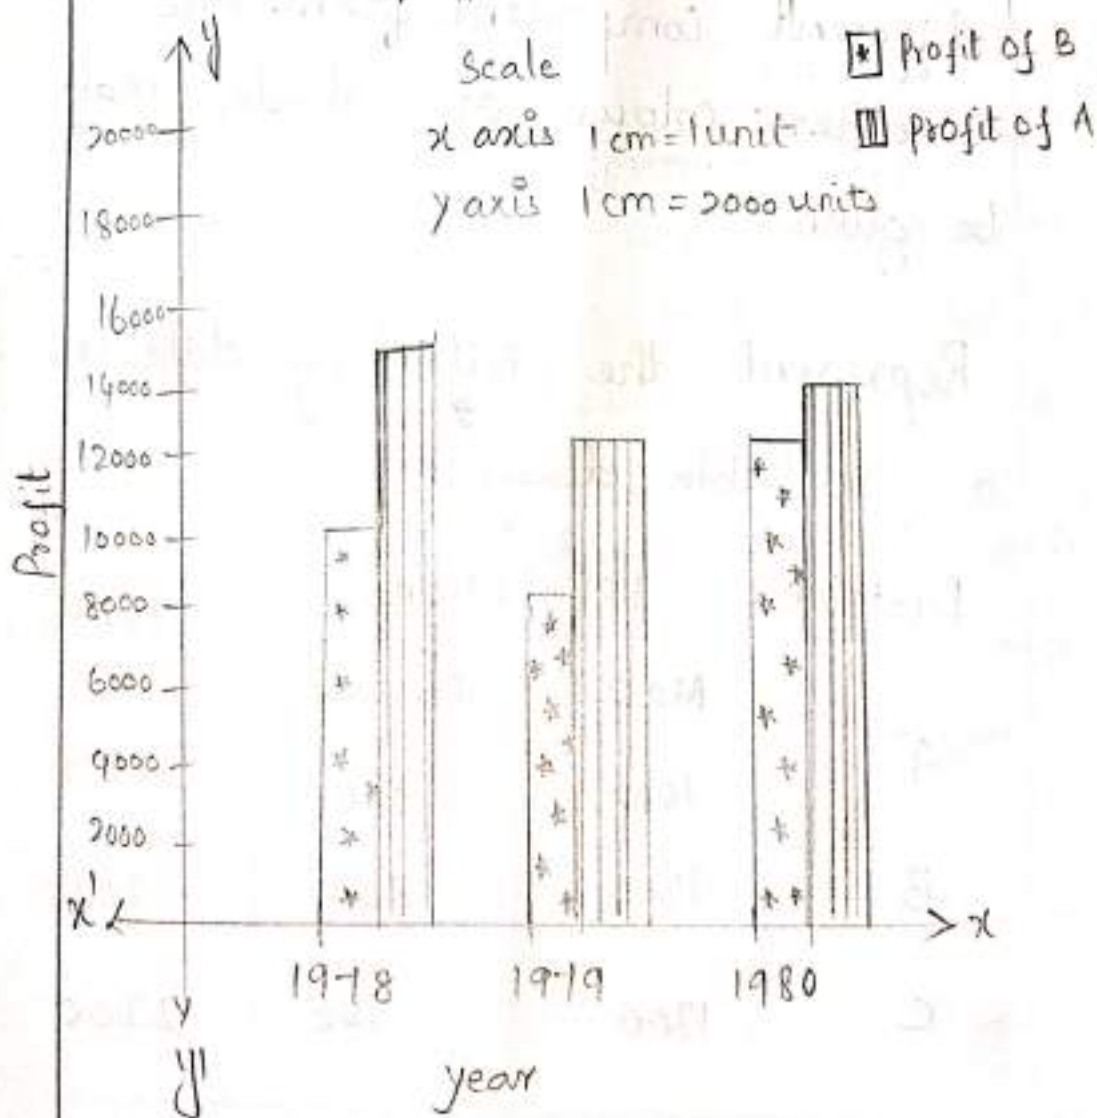 y
Scale
x axis 1 cm = 1 unit
y axis 1 cm = 2000 units
Profit of B
Profit of A
20000
18000
16000
14000
12000
10000
8000
6000
4000
2000
Profit
x'
x
1978
1979
1980
y
y'
year